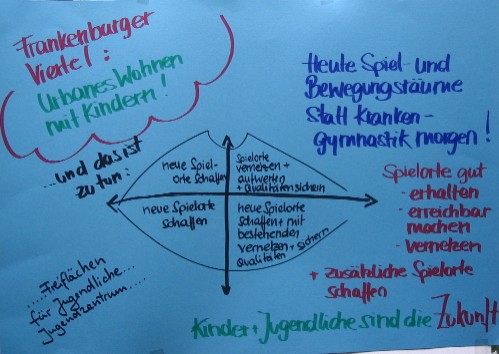 Frankenburger
Viertel:
Urbanes Wohnen
mit Kindern!
Heute Spiel- und
Bewegungsräume
statt Kranken-
gymnastik morgen!
...und das ist
zu tun:
neue Spiel-
orte schaffen
Spielorte
vernetzen +
aufwerten
+ Qualitäten sichern
neue Spielorte
schaffen
neue Spielorte
schaffen + mit
bestehenden
vernetzen + sichern
Qualitäten
Spielorte gut
- erhalten
- erreichbar
machen
- vernetzen
+ zusätzliche Spielorte
schaffen
.....Freiflächen
für Jugendliche...
Jugendzentrum....
Kinder + Jugendliche sind die Zukunft